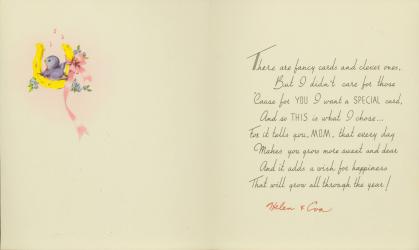 There are fancy cards and clever ones,
But I didn't care for those
'Cause for YOU I want a SPECIAL card,
And so THIS is what I chose...
For it tells you, MOM, that every day
Makes you grow more sweet and dear
And it adds a wish for happiness
That will grow all through the year!
Helen & Eva